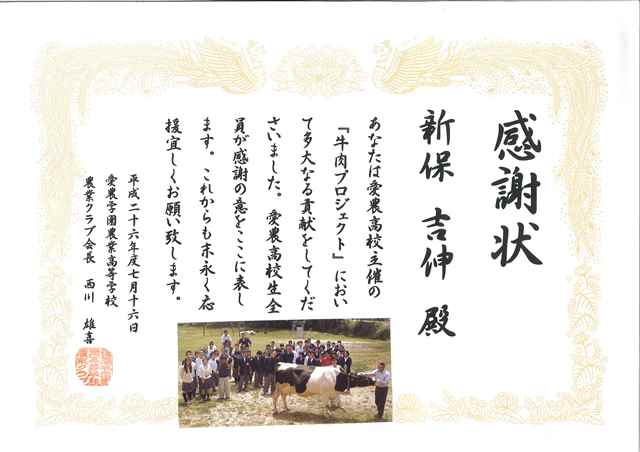 感謝状
新保 吉伸 殿
あなたは愛農高校主催の
『牛肉プロジェクト』におい
て多大なる貢献をしてくだ
さいました。愛農高校生全
員が感謝の意をここに表し
ます。これからも末永く応
援宜しくお願い致します。
平成二十六年度七月十六日
愛農学園農業高等学校
農業クラブ会長 西川 雄喜